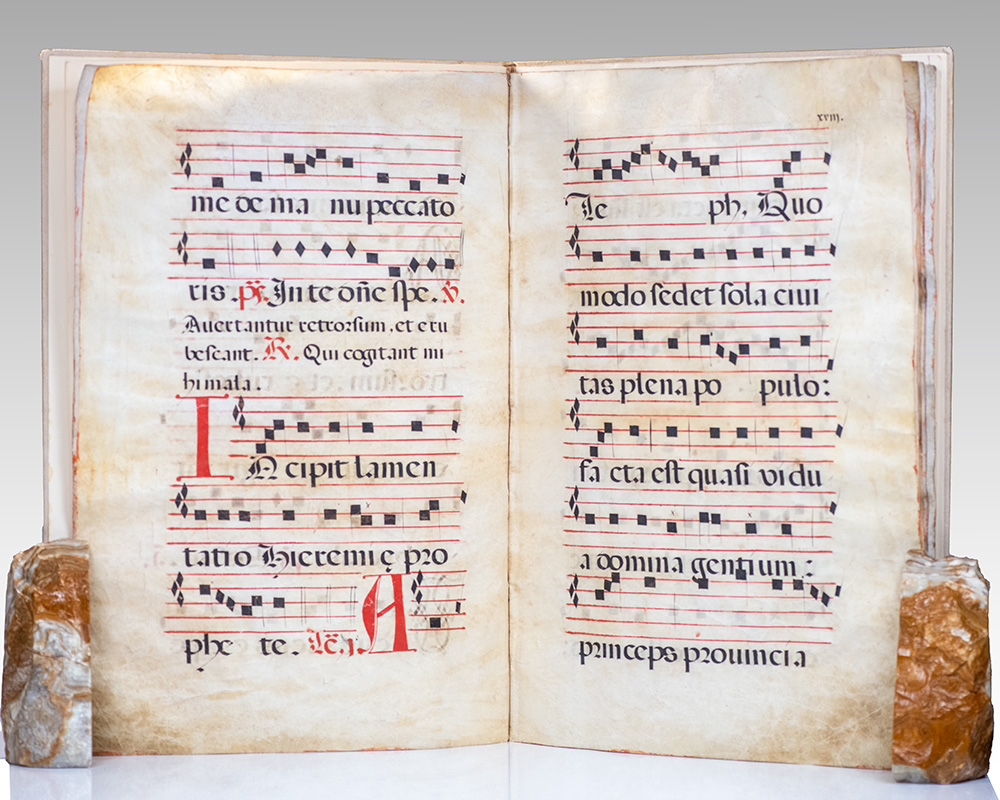 me de ma nu peccato
ris. ps. In te dñe spe. V.
Auertantur retrorsum. et eru
bescant. R. Qui cogitant mi
hi mala.
IN cipit lamen
tatio Hieremię pro
phe te. Lc̃. j. A
xviij.
Ie ph. Quo
modo sedet sola ciui
tas plena po pulo:
fa cta est quasi vidu
a domina gentium:
princeps prouincia